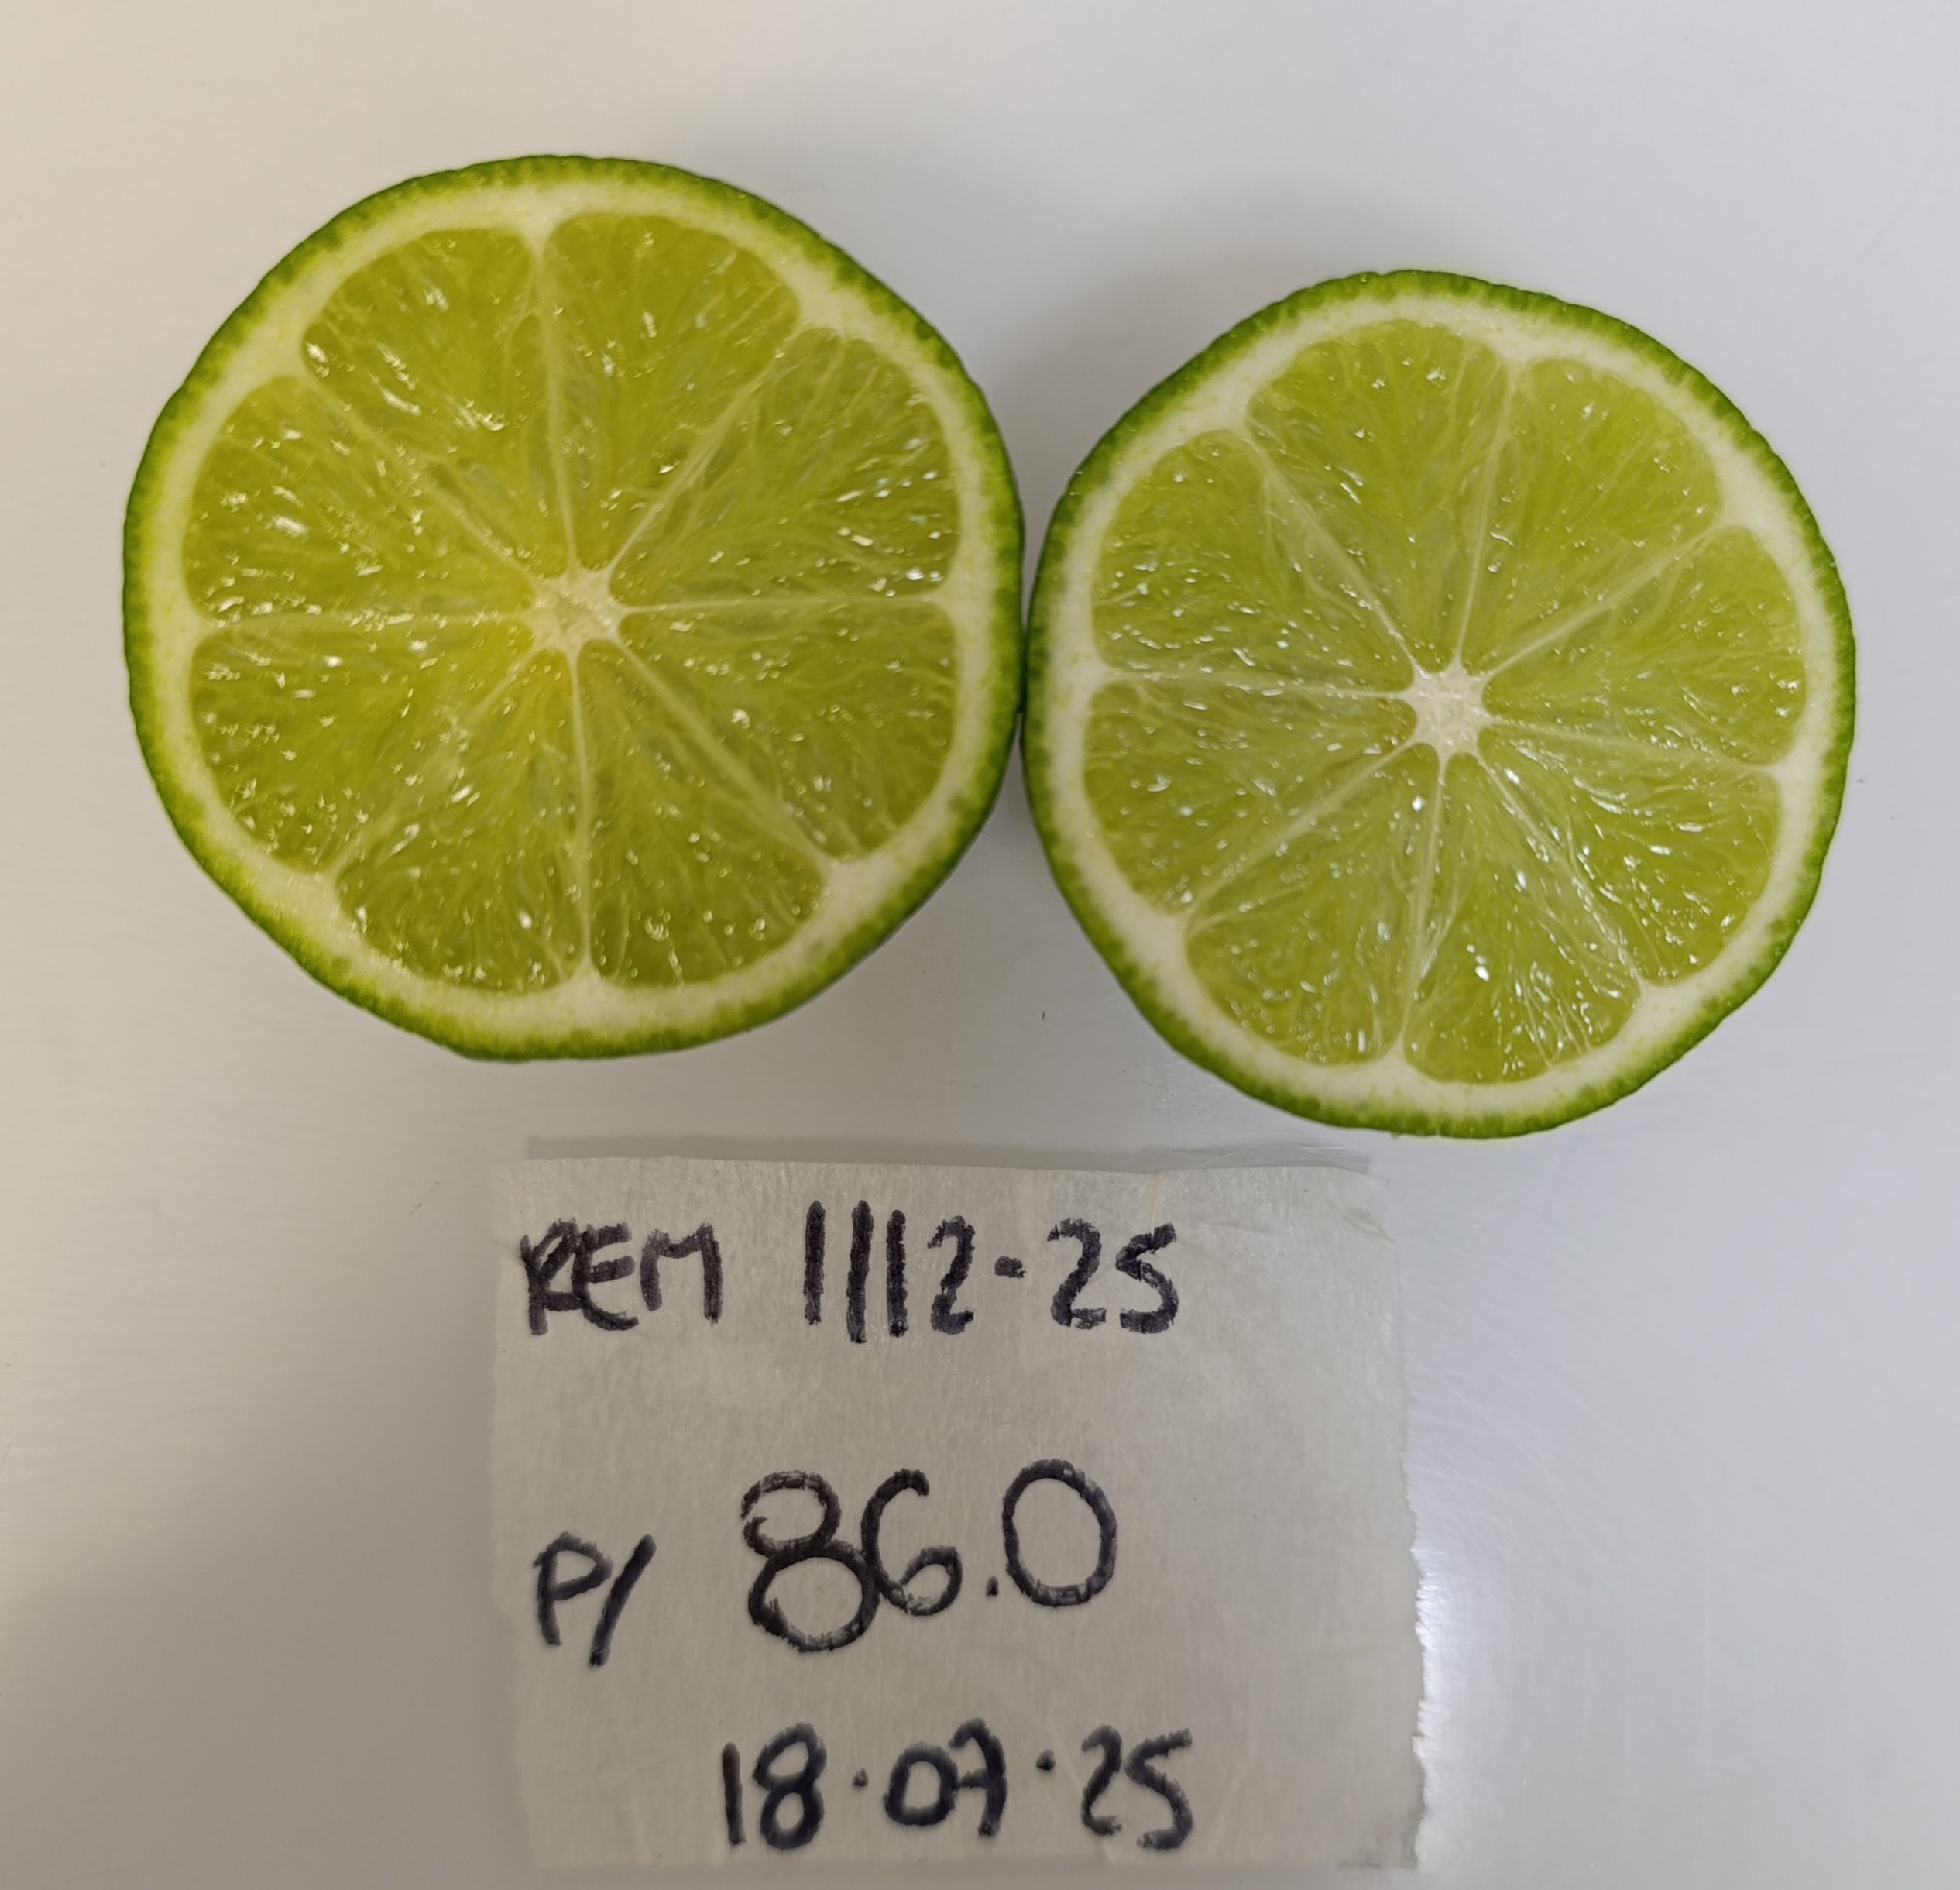 REM 1112-25
P/ 86.0
18.07.25